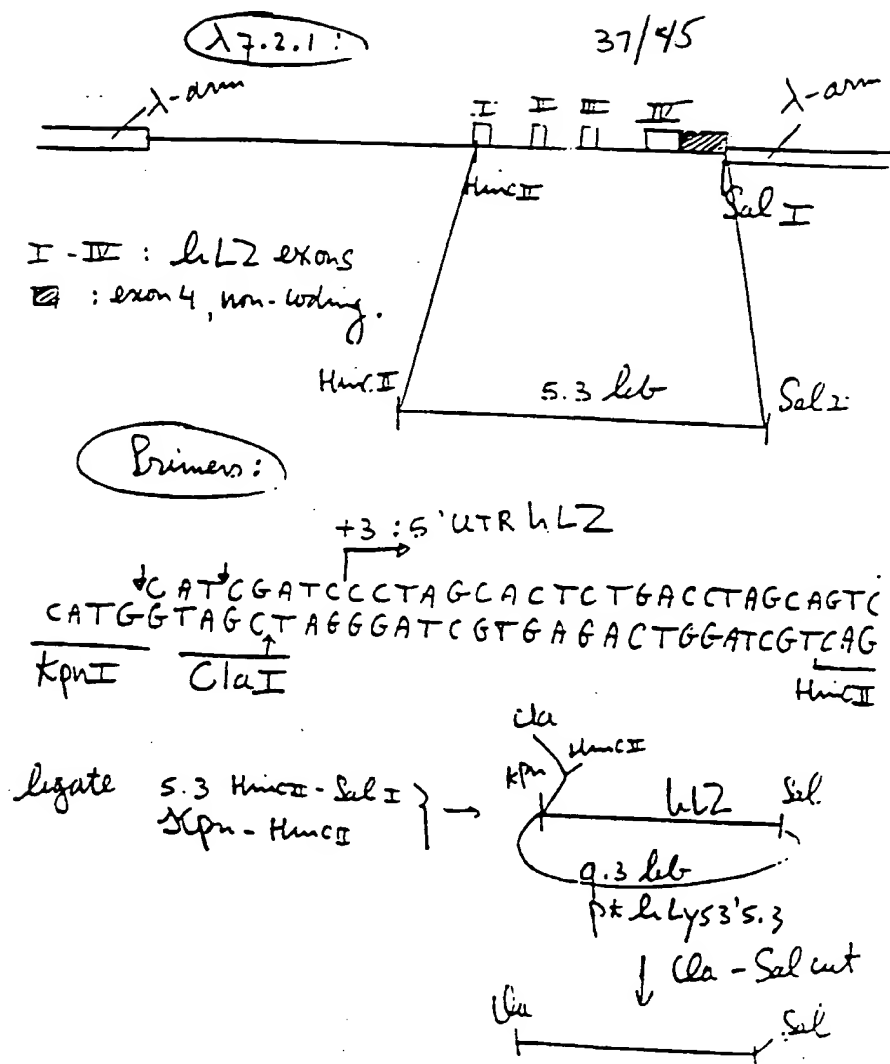 λ7.2.1: 37/45
λ-arm I II III IV λ-arm
HincII Sal I
I - IV : hLZ exons
: exon 4, non-coding.
HincII 5.3 kb Sal I
Primers:
+3 : 5' UTR hLZ
CATCGATCCCTAGCACTCTGACCTAGCAGTC
CATGGTAGCTAGGGATCGTGAGACTGGATCGTCAG
KpnI ClaI HincII
Cla
HincII
ligate 5.3 HincII - Sal I Kpn hLZ Sal.
Kpn - HincII
9.3 kb
hLys3'5.3
Cla - Sal cut
Cla Sal